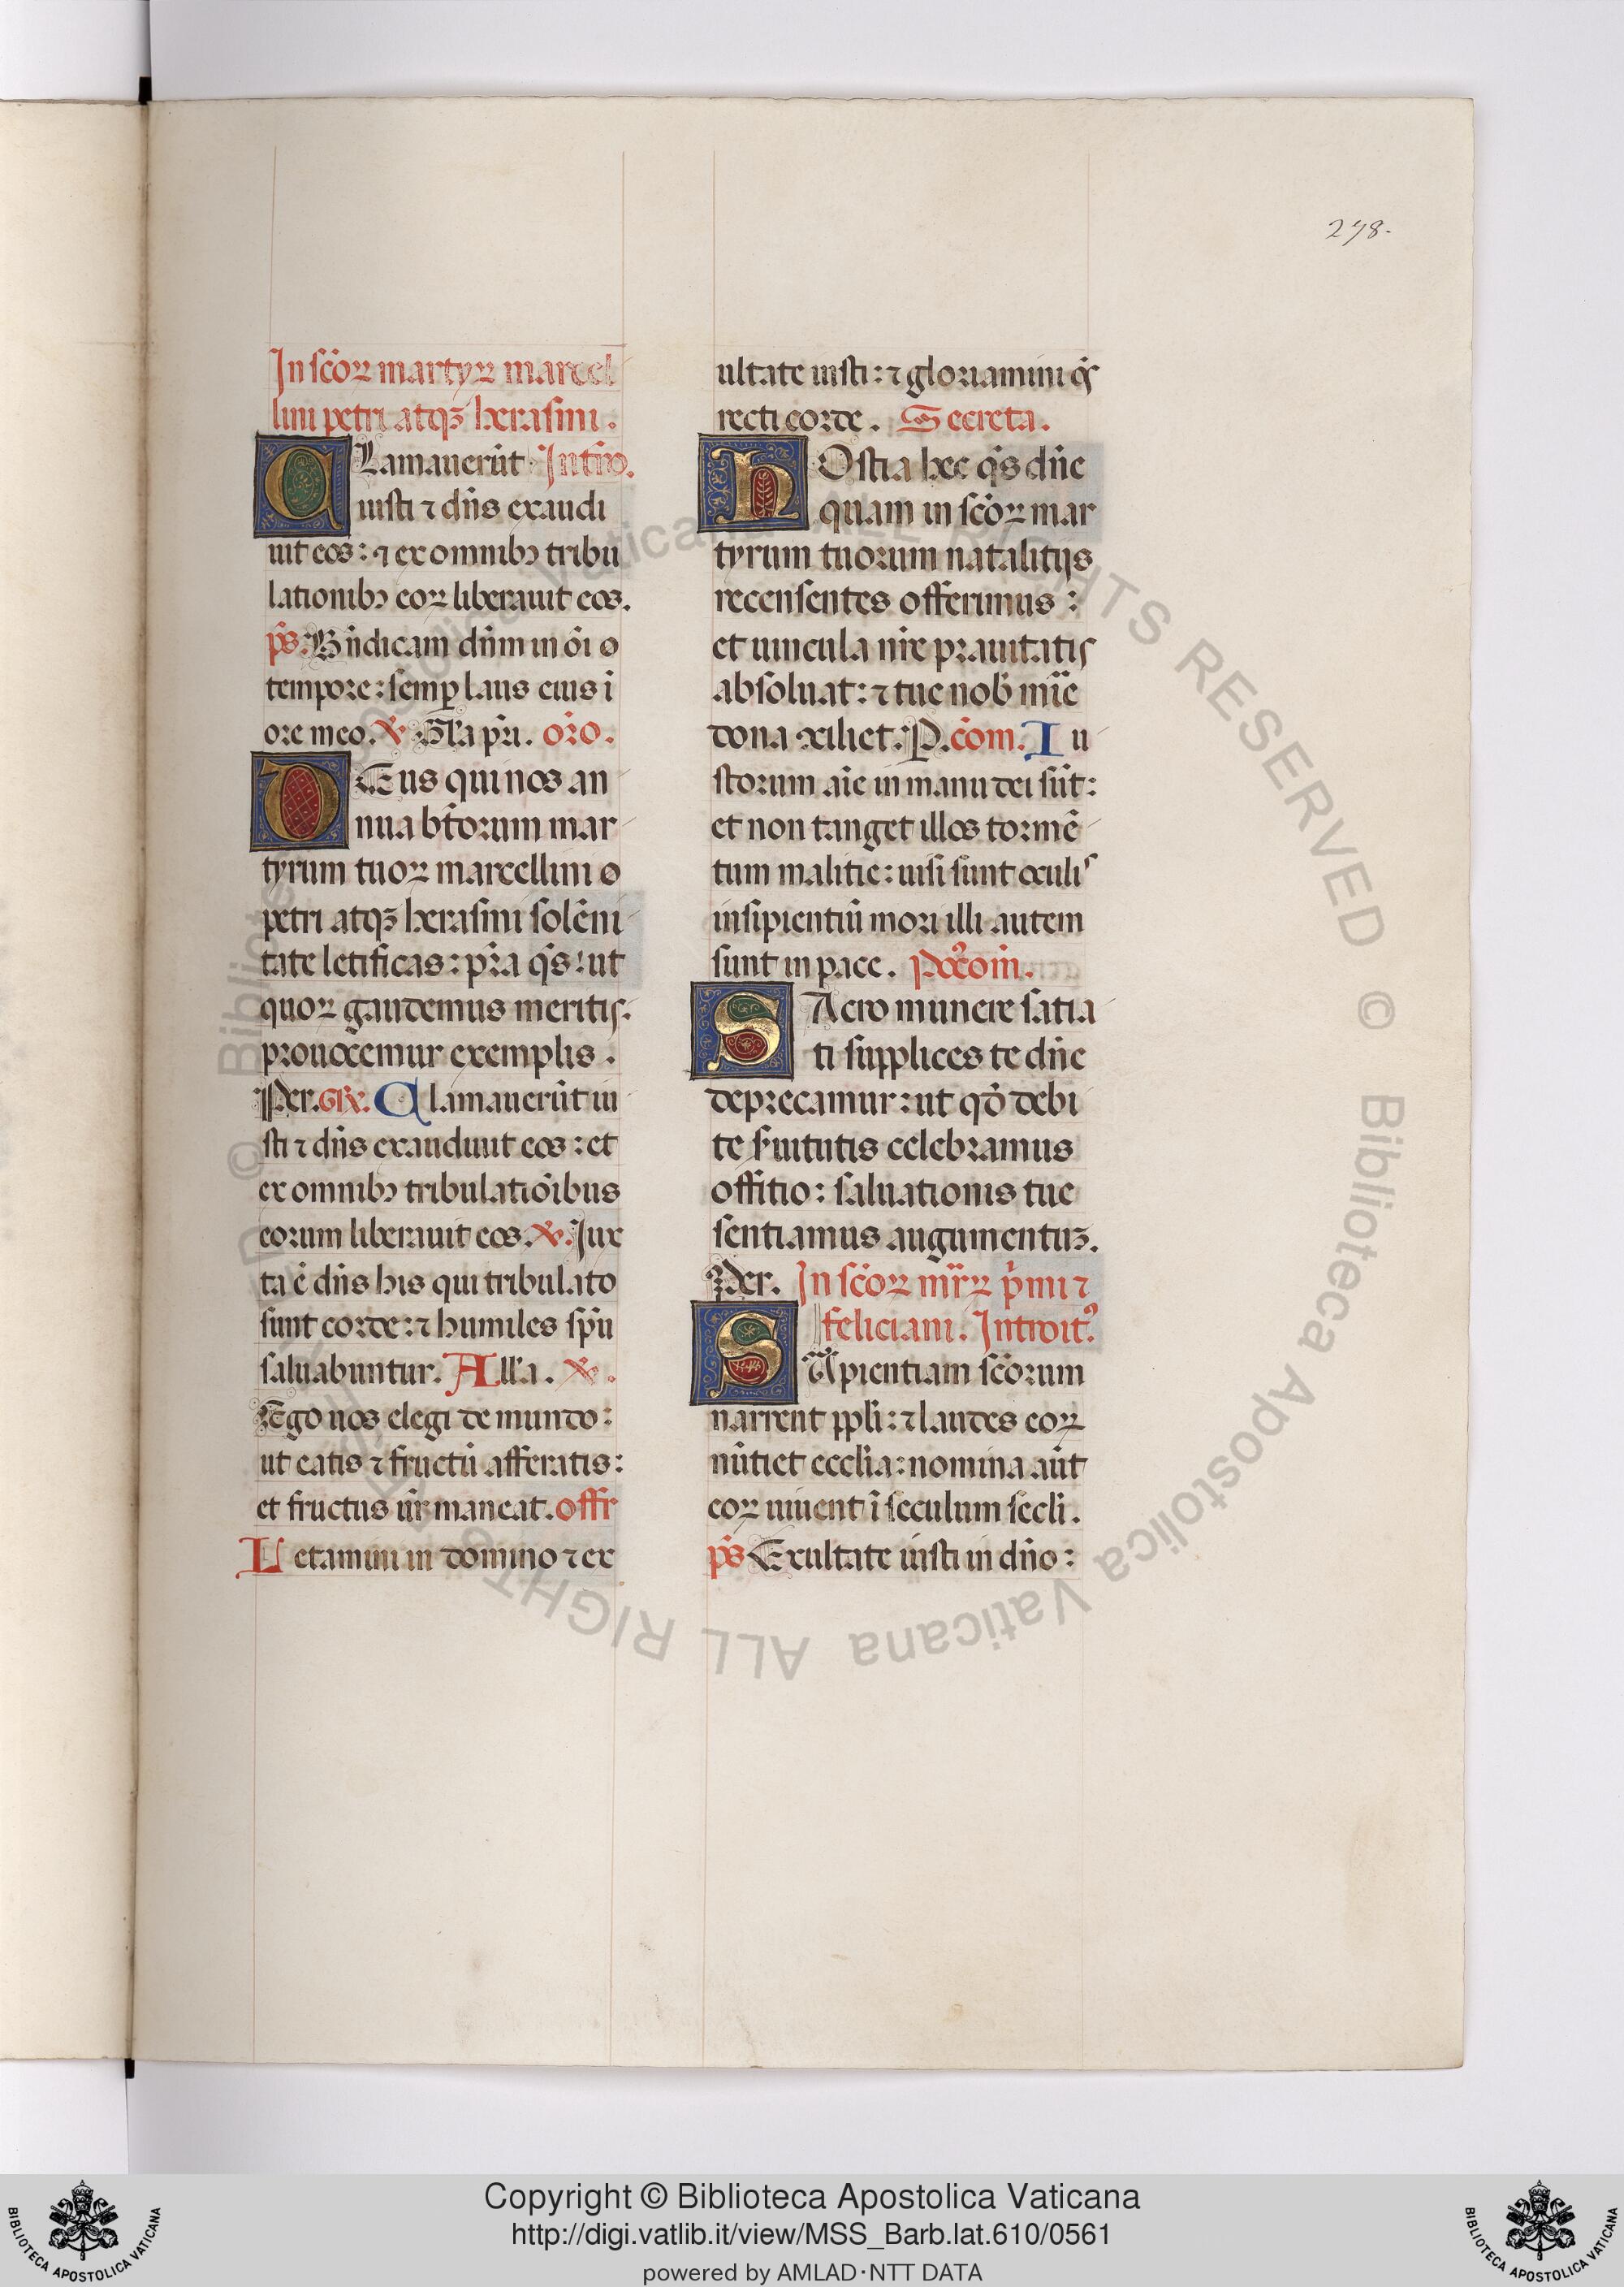 278.
In sčoꝝ martyꝝ marcel
lini petri atqꝫ herasmi.
CLamauerūt Intro.
iusti ⁊ dn̄s exaudi
uit eos: ⁊ ex omnibꝰ tribu
lationibꝰ eoꝝ liberauit eos.
ps. Bn̄dicam dn̄m in oī o
tempore: semꝑ laus eius ī
ore meo. ℣ Gl̄a pr̄i. oro.
DEus qui nos an
nua bt̄orum mar
tyrum tuoꝝ marcellini o
petri atqꝫ herasmi solēni
tate letificas: pr̄a qs̄: ut
quoꝝ gaudemus meritis:
prouocemur exemplis.
Per. GR̄. Clamauerūt iu
sti ⁊ dn̄s exaudiuit eos: et
ex omnibꝰ tribulatiōibus
eorum liberauit eos. ℣. Iux
ta ē dn̄s his qui tribulato
sunt corde: ⁊ humiles spū
saluabuntur. All̄a. ℣.
Ego uos elegi de mundo:
ut eatis ⁊ fructū afferatis:
et fructus ur̄ maneat. offr
Letamini in domino ⁊ ex
ultate iusti: ⁊ gloriamini qs̄
recti corde. Secreta.
HOstia hec qs̄ dn̄e
quam in sčoꝝ mar
tyrum tuorum natalitijs
recensentes offerimus:
et uincula nr̄e prauitatis
absoluat: ⁊ tue nob̄ mīe
dona ↄciliet. P. cōm. Iu
storum aīe in manu dei sūt:
et non tanget illos tormē
tum malitie: uisi sunt oculis
insipientiū mori illi autem
sunt in pace. Poꝰcom̄.
SAcro munere satia
ti supplices te dn̄e
deprecamur: ut qđ debi
te s̄uitutis celebramus
offitio: saluationis tue
sentiamus augumentuꝫ.
Per. In sčoꝝ mr̄ꝝ pˈmi ⁊
feliciani. Introitꝰ.
SApientiam sčorum
narrent ppl̄i: ⁊ laudes eoꝝ
nūtiet eccl̄ia: nomina aūt
eoꝝ uiuent ī seculum secl̄i.
ps Exultate iusti in dn̄o:
© Biblioteca Apostolica Vaticana ALL RIGHTS RESERVED © Biblioteca Apostolica Vaticana ALL RIGHTS RESERVED
Copyright © Biblioteca Apostolica Vaticana
http://digi.vatlib.it/view/MSS_Barb.lat.610/0561
powered by AMLAD·NTT DATA
BIBLIOTECA APOSTOLICA VATICANA
BIBLIOTECA APOSTOLICA VATICANA